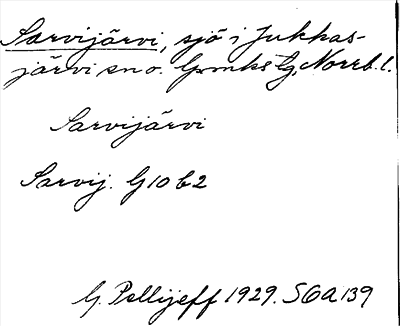 Sarvijärvi, sjö i Jukkas-
järvi sn o. Lpmks tg, Norrb. l.
Sarvijärvi
Sarvij. G10 b2
G. Pellijeff 1929. S6A139